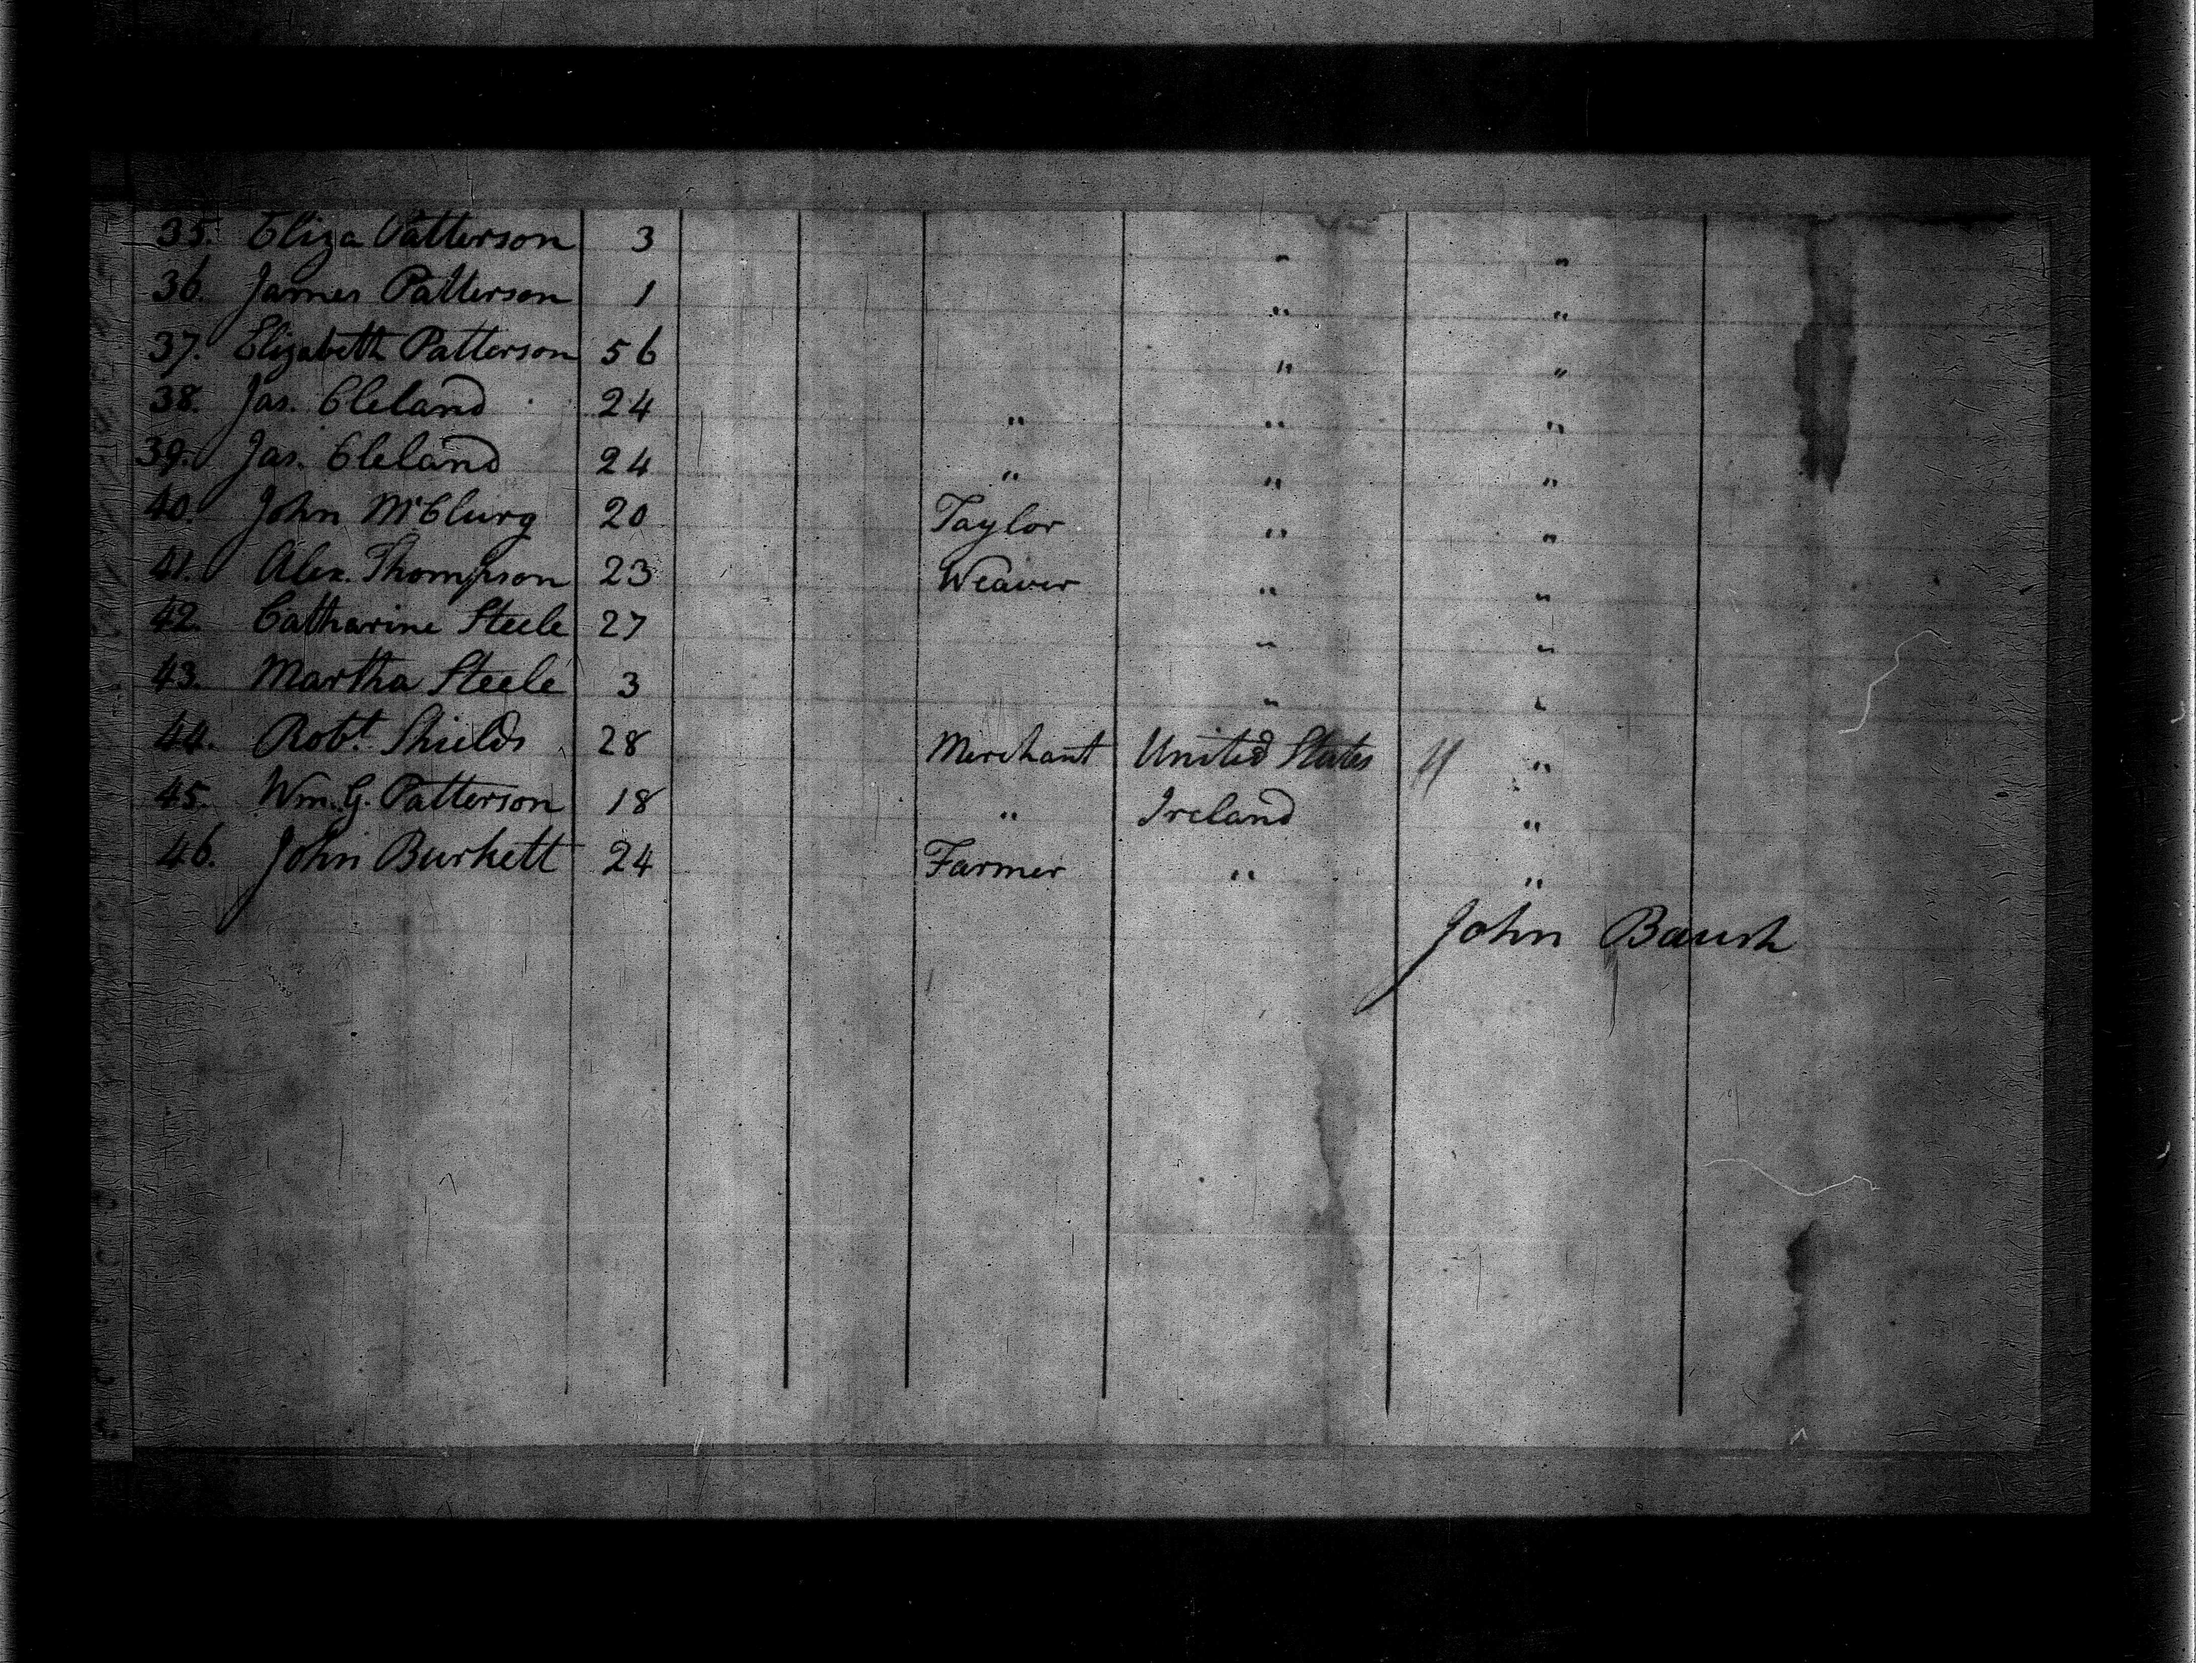 35. Eliza Patterson 3 " "
36. James Patterson 1 " "
37. Elizabeth Patterson 56 " "
38. Jas. Cleland 24 " " "
39. Jas. Cleland 24 " " "
40. John McClurg 20 Taylor " "
41. Alex. Thompson 23 Weaver " "
42. Catharine Steele 27 " "
43. Martha Steele 3 " "
44. Robt. Shields 28 Merchant United States "
45. Wm. G. Patterson 18 " Ireland "
46. John Burkett 24 Farmer " "
John